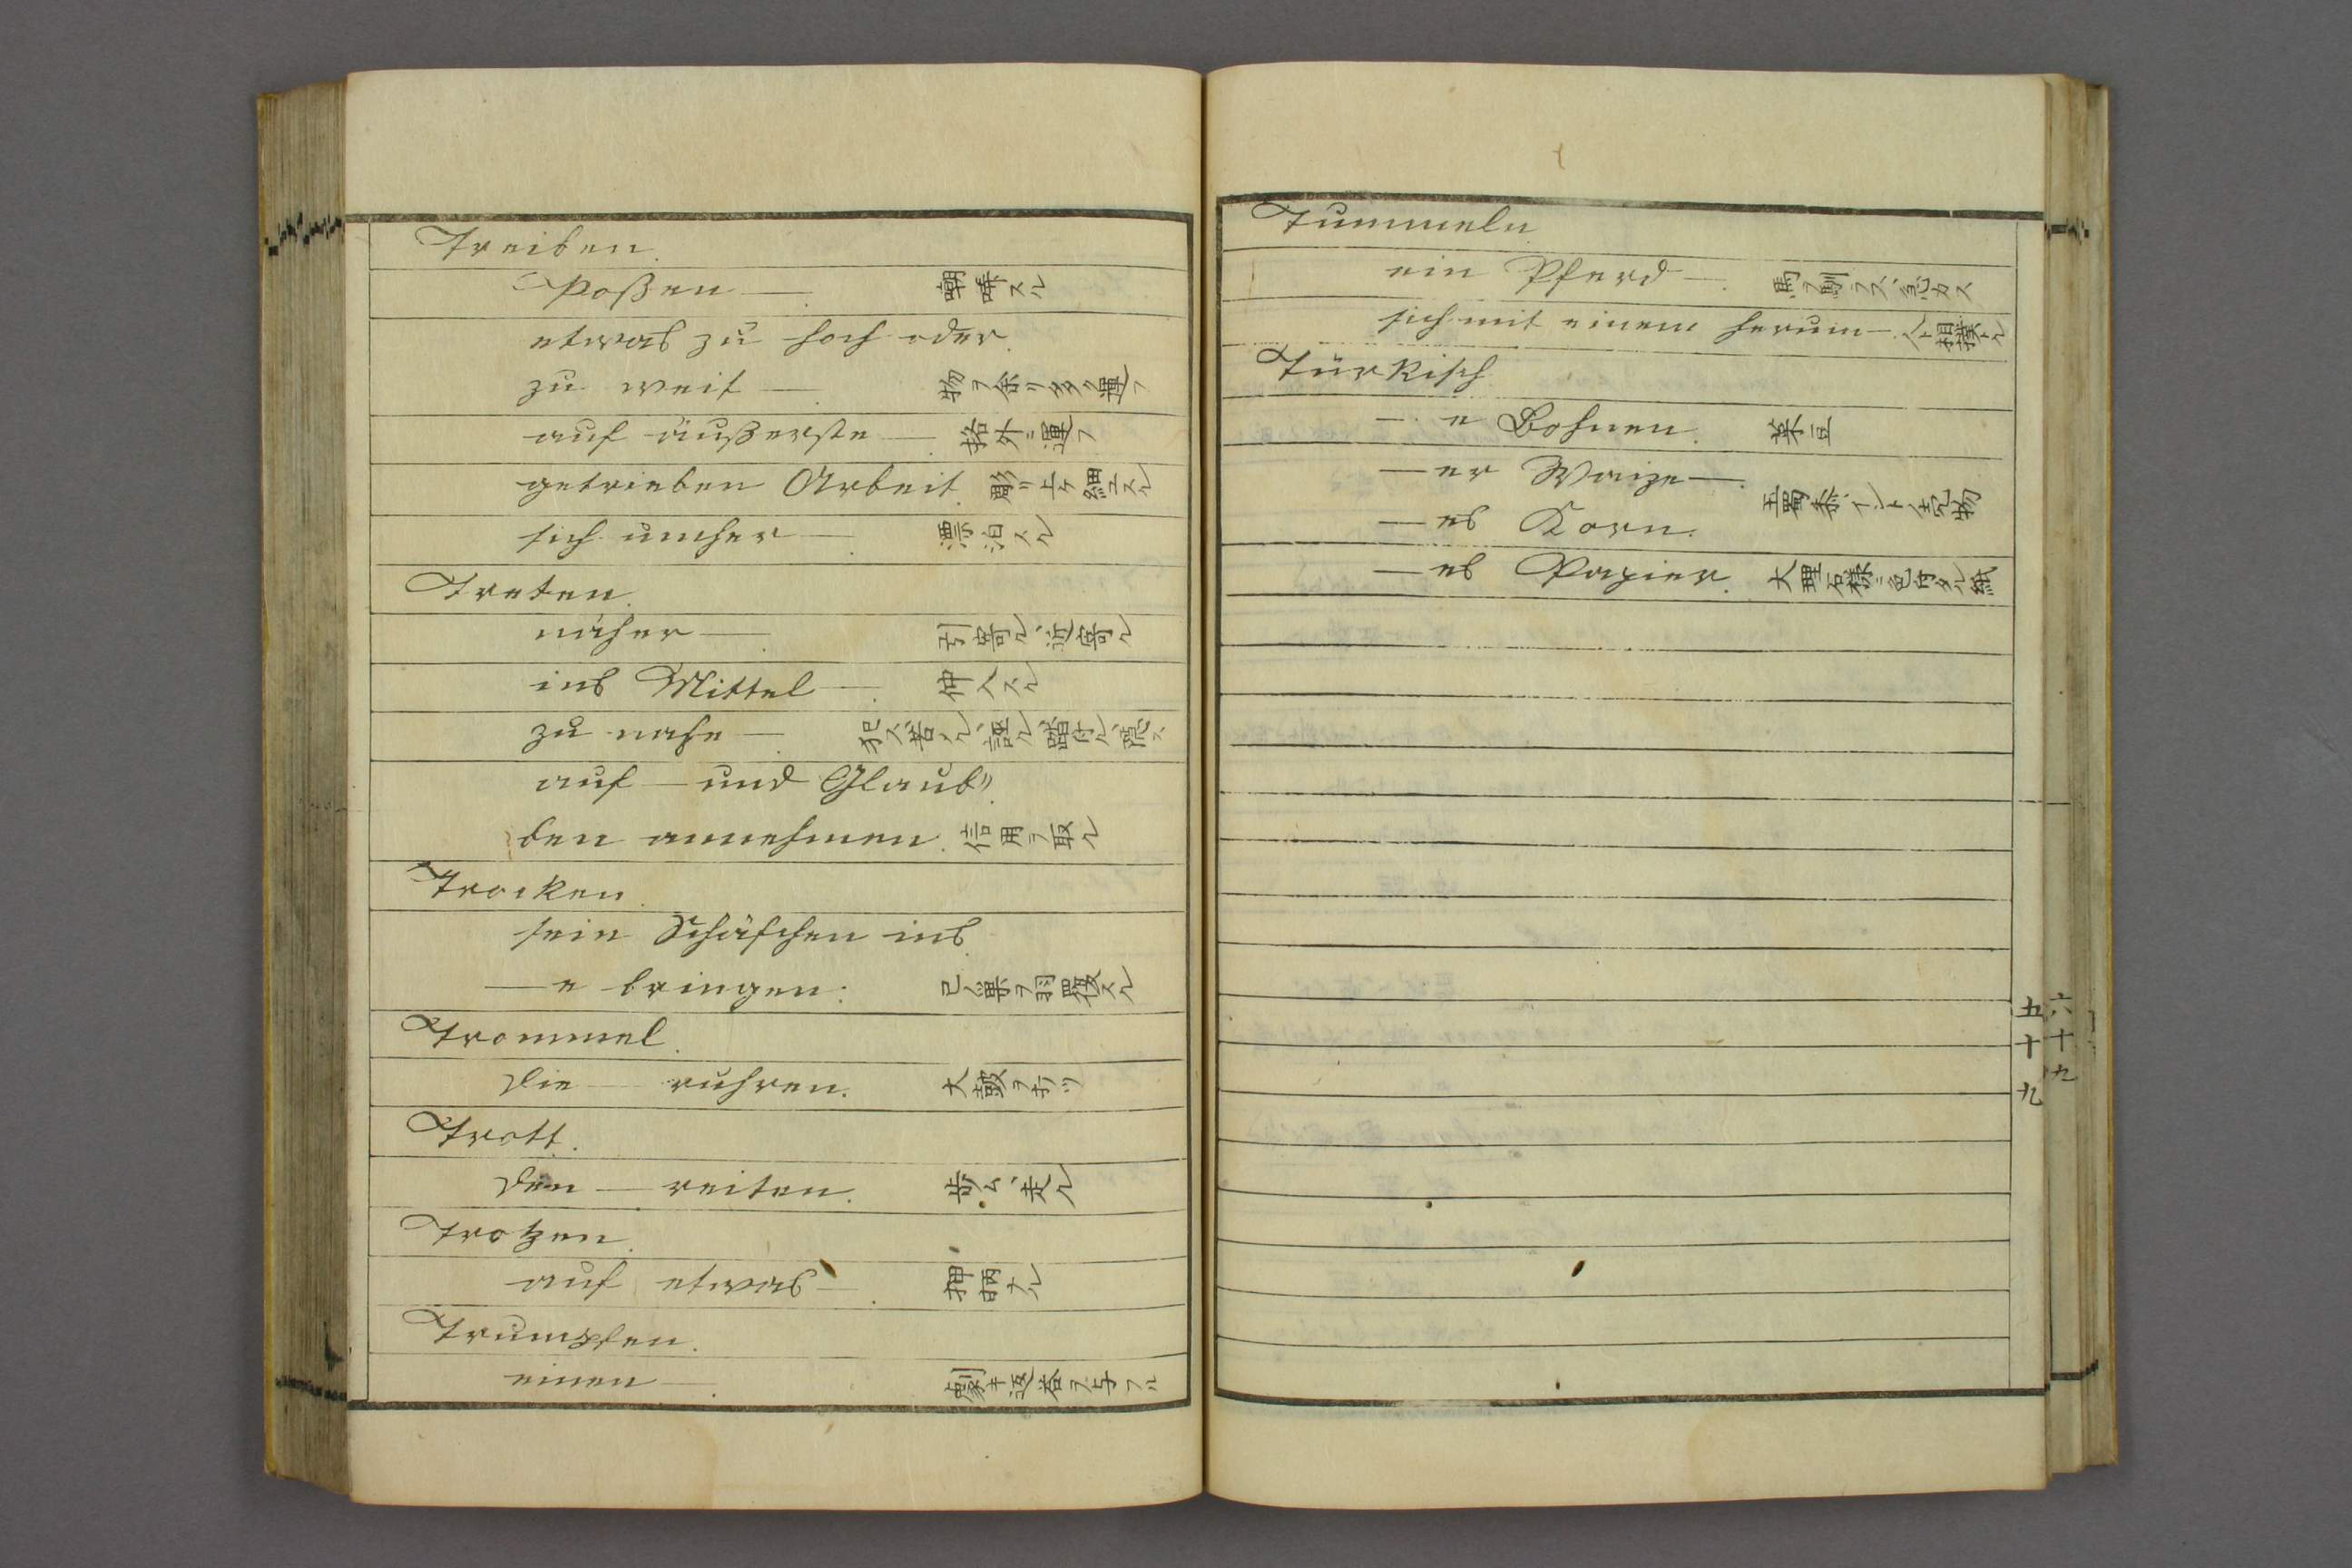 Treiben.
Poßen —. 嘲哢スル
etwas zu hoch oder
zu weit —. 物ヲ余リ多ク運フ
auf äußerste —. 格外ニ運フ
getrieben Arbeit. 彫リ上ケ細工スル
sich umher —. 漂泊スル
Treten.
näher —. 引寄ル、近寄ル
ins Mittel —. 仲人スル
zu nahe —.
auf — und Glaub〃
ben annehmen. 信用ヲ取ル
Trocken.
sein Schäfchen ins
— e bringen. 己ノ巣ヲ羽覆スル
Trommel.
die — ruhren. 大鼓ヲ打ツ
Trott.
den — reiten. 歩ム、走ル
Trotzen.
auf etwas —. 押柄ナル
Trumpfen.
einen —. 劇キ返答ヲ与フル
Tummeln
ein Pferd —. 馬ヲ馴ラス、急カス
sich mit einem herum — 人ト相撲トル
Türkisch
— e Bohnen. 菜豆
— er Waize —.
— es Korn.
— es Papier. 大理石様ニ色付タル紙
五十九
六十九